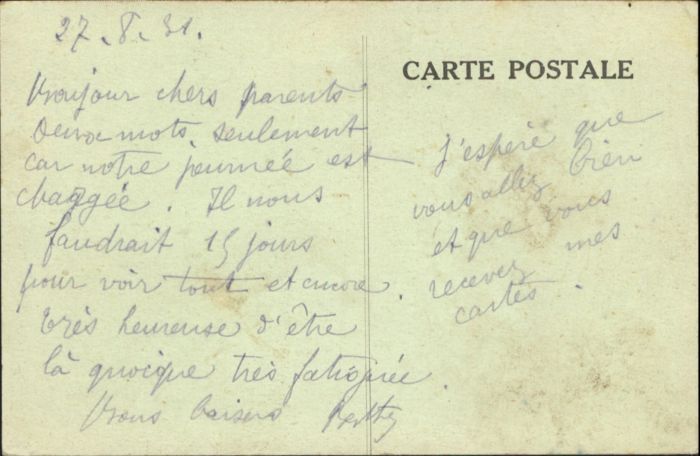 27.8.31.
Bonjour chers parents
Deux mots seulement
car notre journée est
chargée. Il nous
faudrait 15 jours
pour voir tout et encore.
très heureuse d'être
là quoique très fatiguée.
Bons baisers
CARTE POSTALE
J'espère que
vous allez bien
et que vous
recevez mes
cartes.